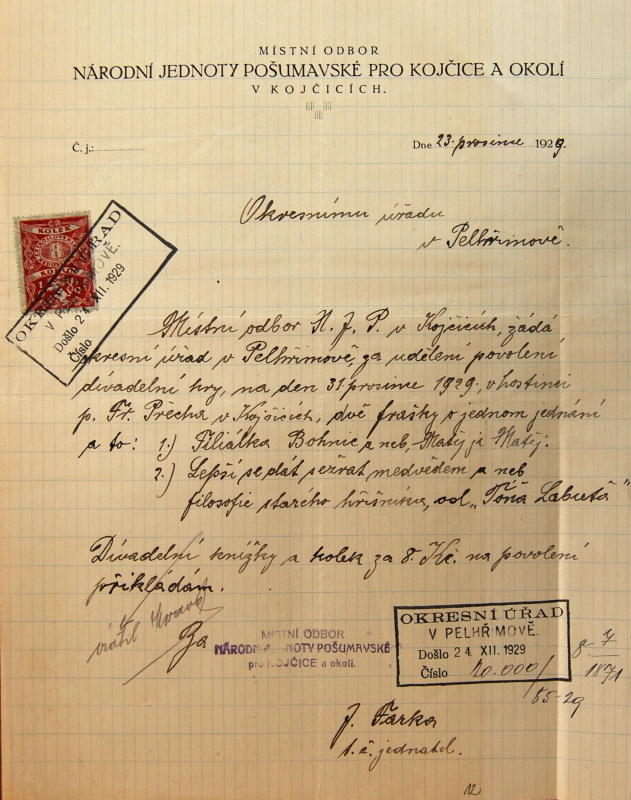 MÍSTNÍ ODBOR
NÁRODNÍ JEDNOTY POŠUMAVSKÉ PRO KOJČICE A OKOLÍ
V KOJČICÍCH.
Č. j.:
Dne 23. prosince 1929.
Okresnímu úřadu
v Pelhřimově.
KOLEK
8
OKRESNÍ ÚŘAD
V PELHŘIMOVĚ.
Došlo 24 XII. 1929
Číslo
Místní odbor N. J. P. v Kojčicích, žádá
okresní úřad v Pelhřimově, za udělení povolení
divadelní hry, na den 31 prosince 1929, v hostinci
p. Fr. Přecha v Kojčicích, dvě frašky o jednom jednání
a to: 1.) Filiálka Bohnic a neb, Matěj já Matěj:
2.) Lepší se dát sežrat medvědem a neb
filosofie starého hříšníka, od „Tóňa Labutě"
Divadelní knížky a kolek za 8. Kč. na povolení
přikládám.
Za
MÍSTNÍ ODBOR
NÁRODNÍ JEDNOTY POŠUMAVSKÉ
pro KOJČICE a okolí.
OKRESNÍ ÚŘAD
V PELHŘIMOVĚ.
Došlo 24 XII. 1929
Číslo 20.000/
85-29
8 7
1871
J. Farka
t. č. jednatel.
12